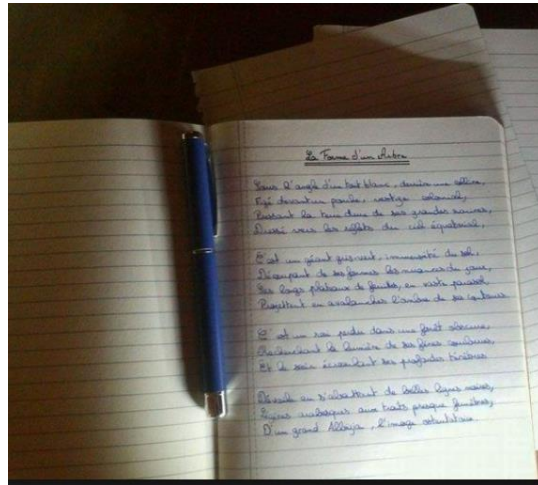 La Forme d'un Arbre
Sous l'angle d'un toit blanc, derrière une colline,
Figé devant un porche, vestige colonial,
Poussant la terre dure de ses grandes racines,
Aussi sous les reflets du ciel équatorial,
C'est un géant gris vert, immensité du sol,
Découpant de ses formes les nuances du jour,
Ses longs plateaux de feuilles, en vaste parasol,
Projettent en avalanches l'ombre de ses contours
C'est un roi perdu dans une forêt obscure,
Recherchant la lumière de ses
Et le soir écroulant ses profondes ténèbres
Dévoile en s'abattant de belles lignes noires,
arabesques aux traits presque funèbres,
D'un grand , l'image ostentatoire.